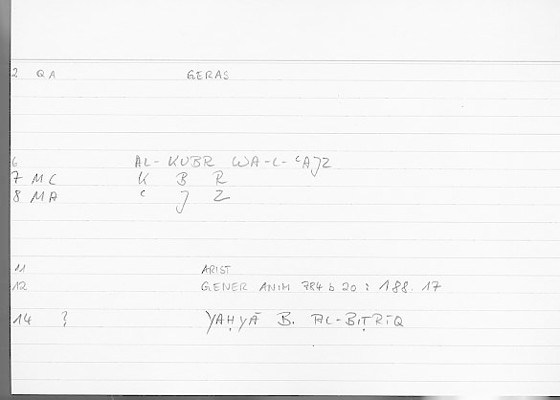 2 QA GERAS
6 AL-KUBR WA-L-ʿAJZ
7 MC K B R
8 MA ʿ J Z
11 ARIST
12 GENER ANIM 784 b 20 : 188. 17
14 ? YAḤYĀ B. AL-BIṬRĪQ